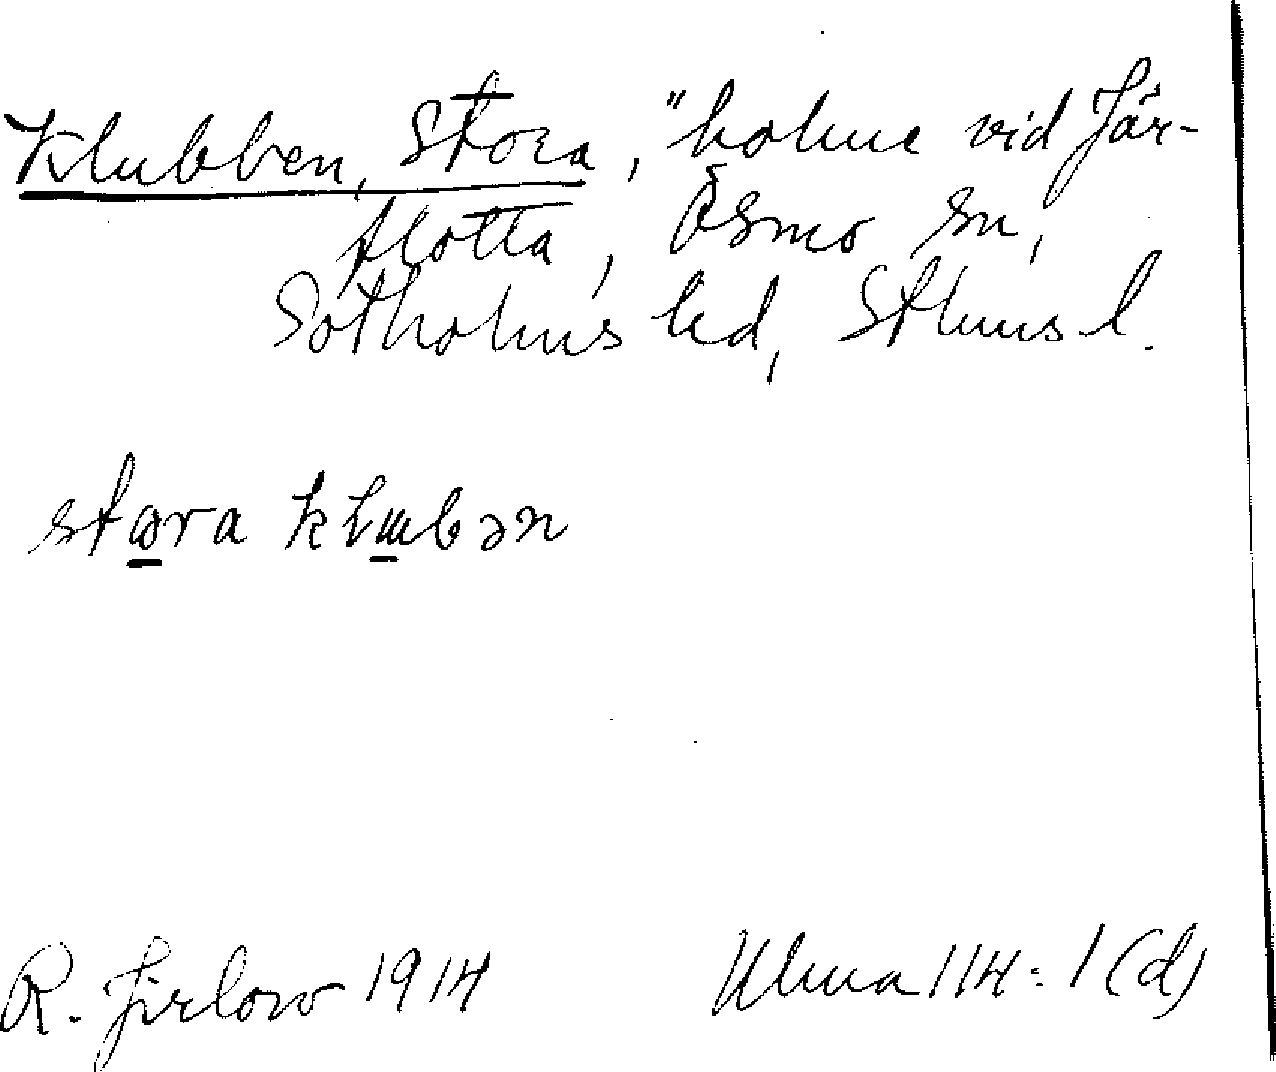 Klubben, Stora, "holme vid Jär-
flotta, Ösmo sn,
Sotholms hd, Sthms l.
stɷra klɯbən
R. Jirlow 1914
Ulma 114:1(d)